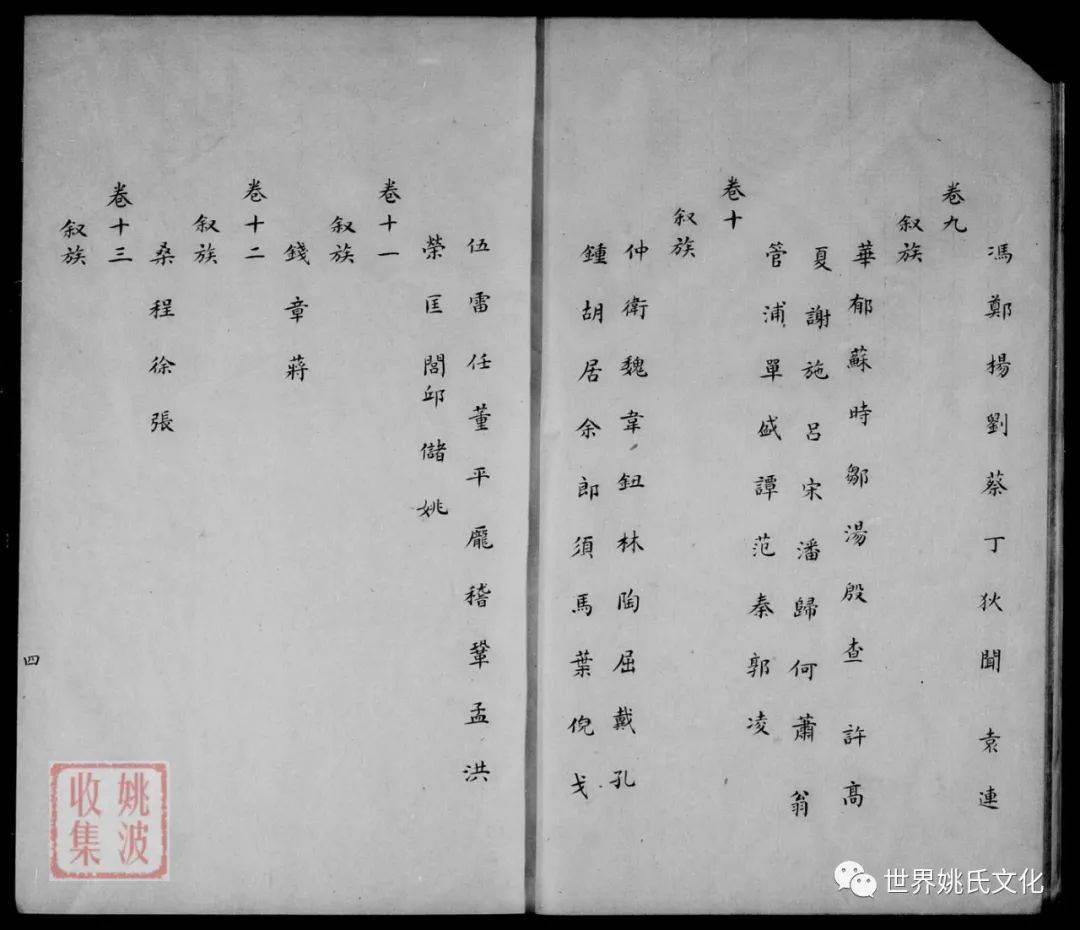 馮鄭楊劉蔡丁狄聞袁連
卷九
叙族
華郁蘇時鄒湯殷查許高
夏謝施呂宋潘歸何蕭翁
管浦單盛譚范秦郭凌
卷十
叙族
仲衛魏韋鈕林陶屈戴孔
鍾胡居余郎須馬葉倪戈
伍雷任董平龐稽鞏孟洪
榮匡閻邱儲姚
卷十一
叙族
錢章蔣
卷十二
叙族
桑程徐張
卷十三
叙族
四
姚波
收集
世界姚氏文化